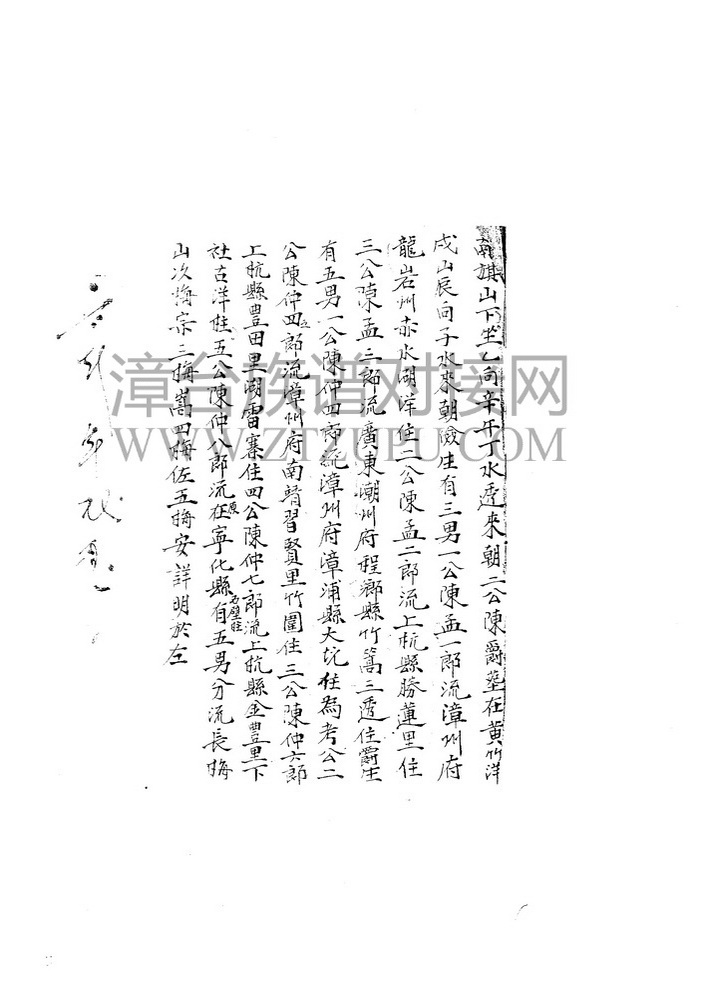 旗山下坐乙向辛午丁水透來朝二公陳爵墓在黃竹洋
戌山辰向子水來朝僉生有三男一公陳孟一郎流漳州府
龍岩州赤水湖洋住二公陳孟二郎流上杭縣勝蓮里住
三公陳孟三郎流廣東潮州府程鄉縣竹篙三透住爵生
有五男一公陳仲四郎流漳州府漳浦縣大坑住為考公二
公陳仲四五郎流漳州府南晉習賢里竹圍住三公陳仲六郎
上杭縣豐田里湖雷寨住四公陳仲七郎流上杭縣金豐里下
社古洋住五公陳仲八郎流在原寧化縣石壁住有五男分流長梅
山次梅宗三梅嵩四梅佐五梅安詳明於左
漳台族谱对接网
WWW.ZTZUPU.COM